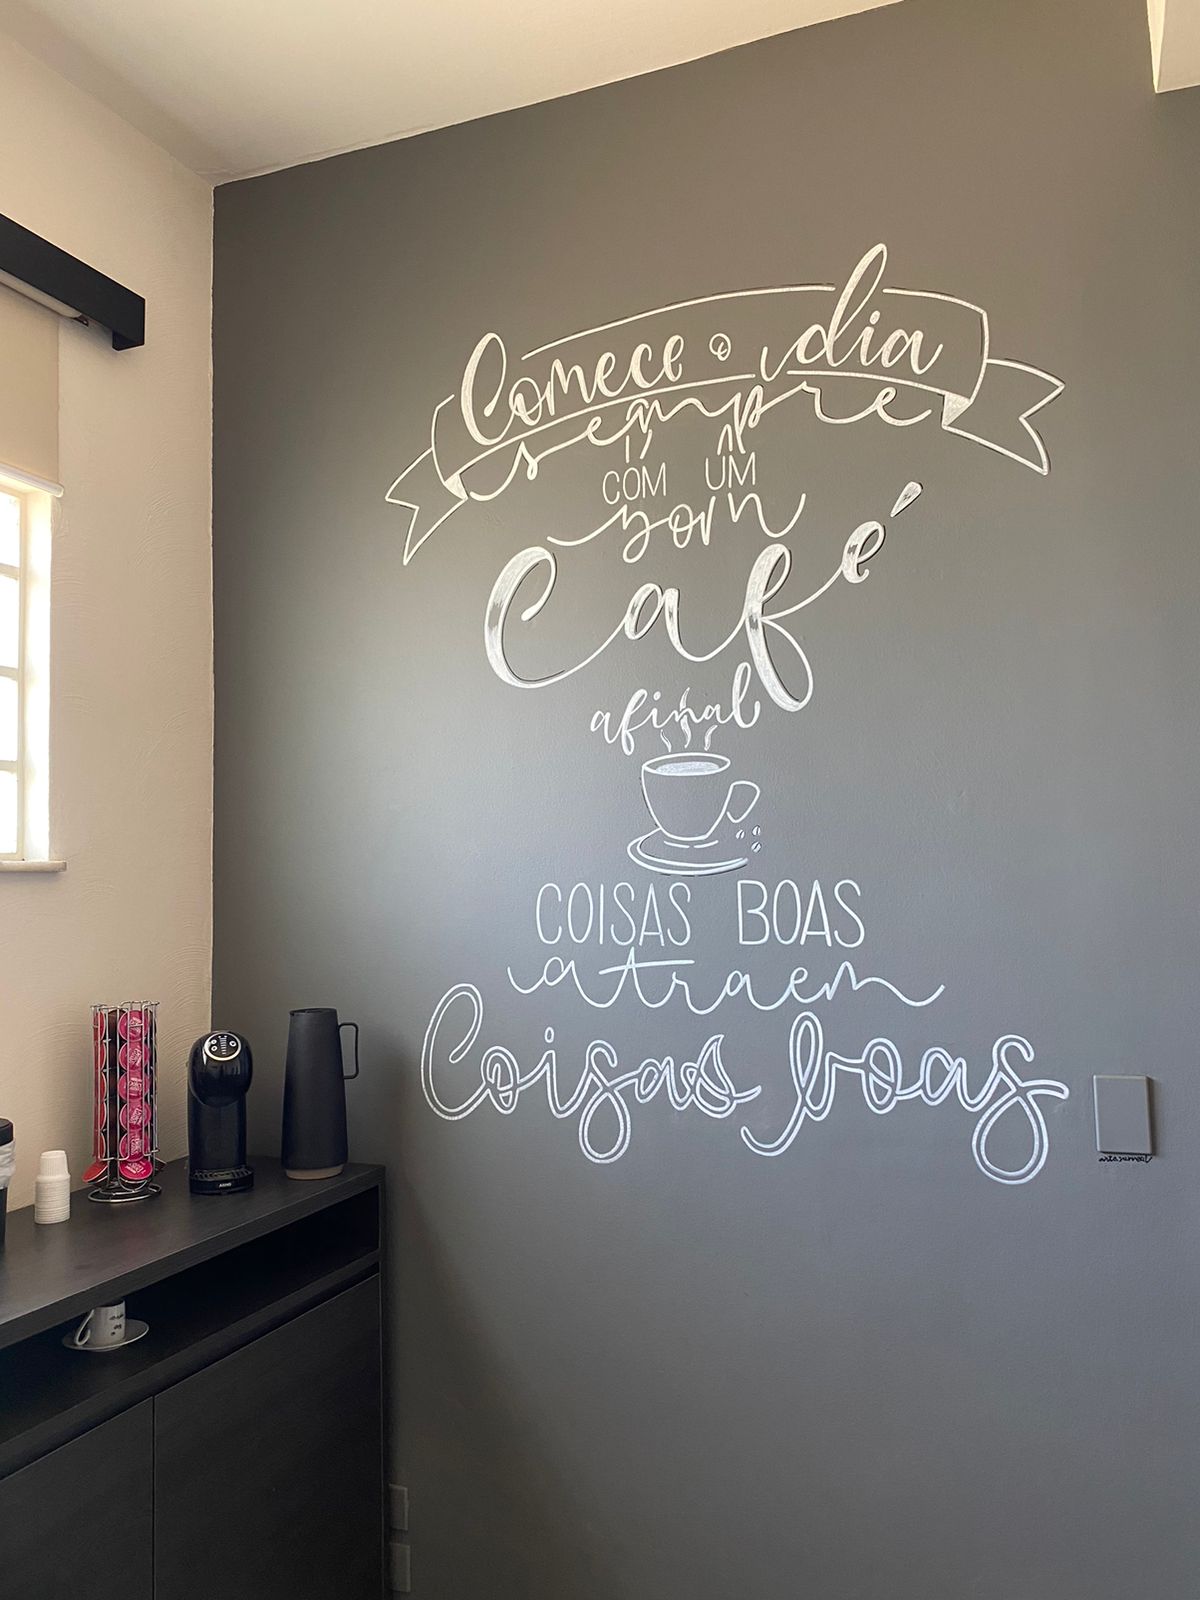 Começe o dia
sempre
COM UM
bom
Café
afinal
COISAS BOAS
atraem
Coisas boas